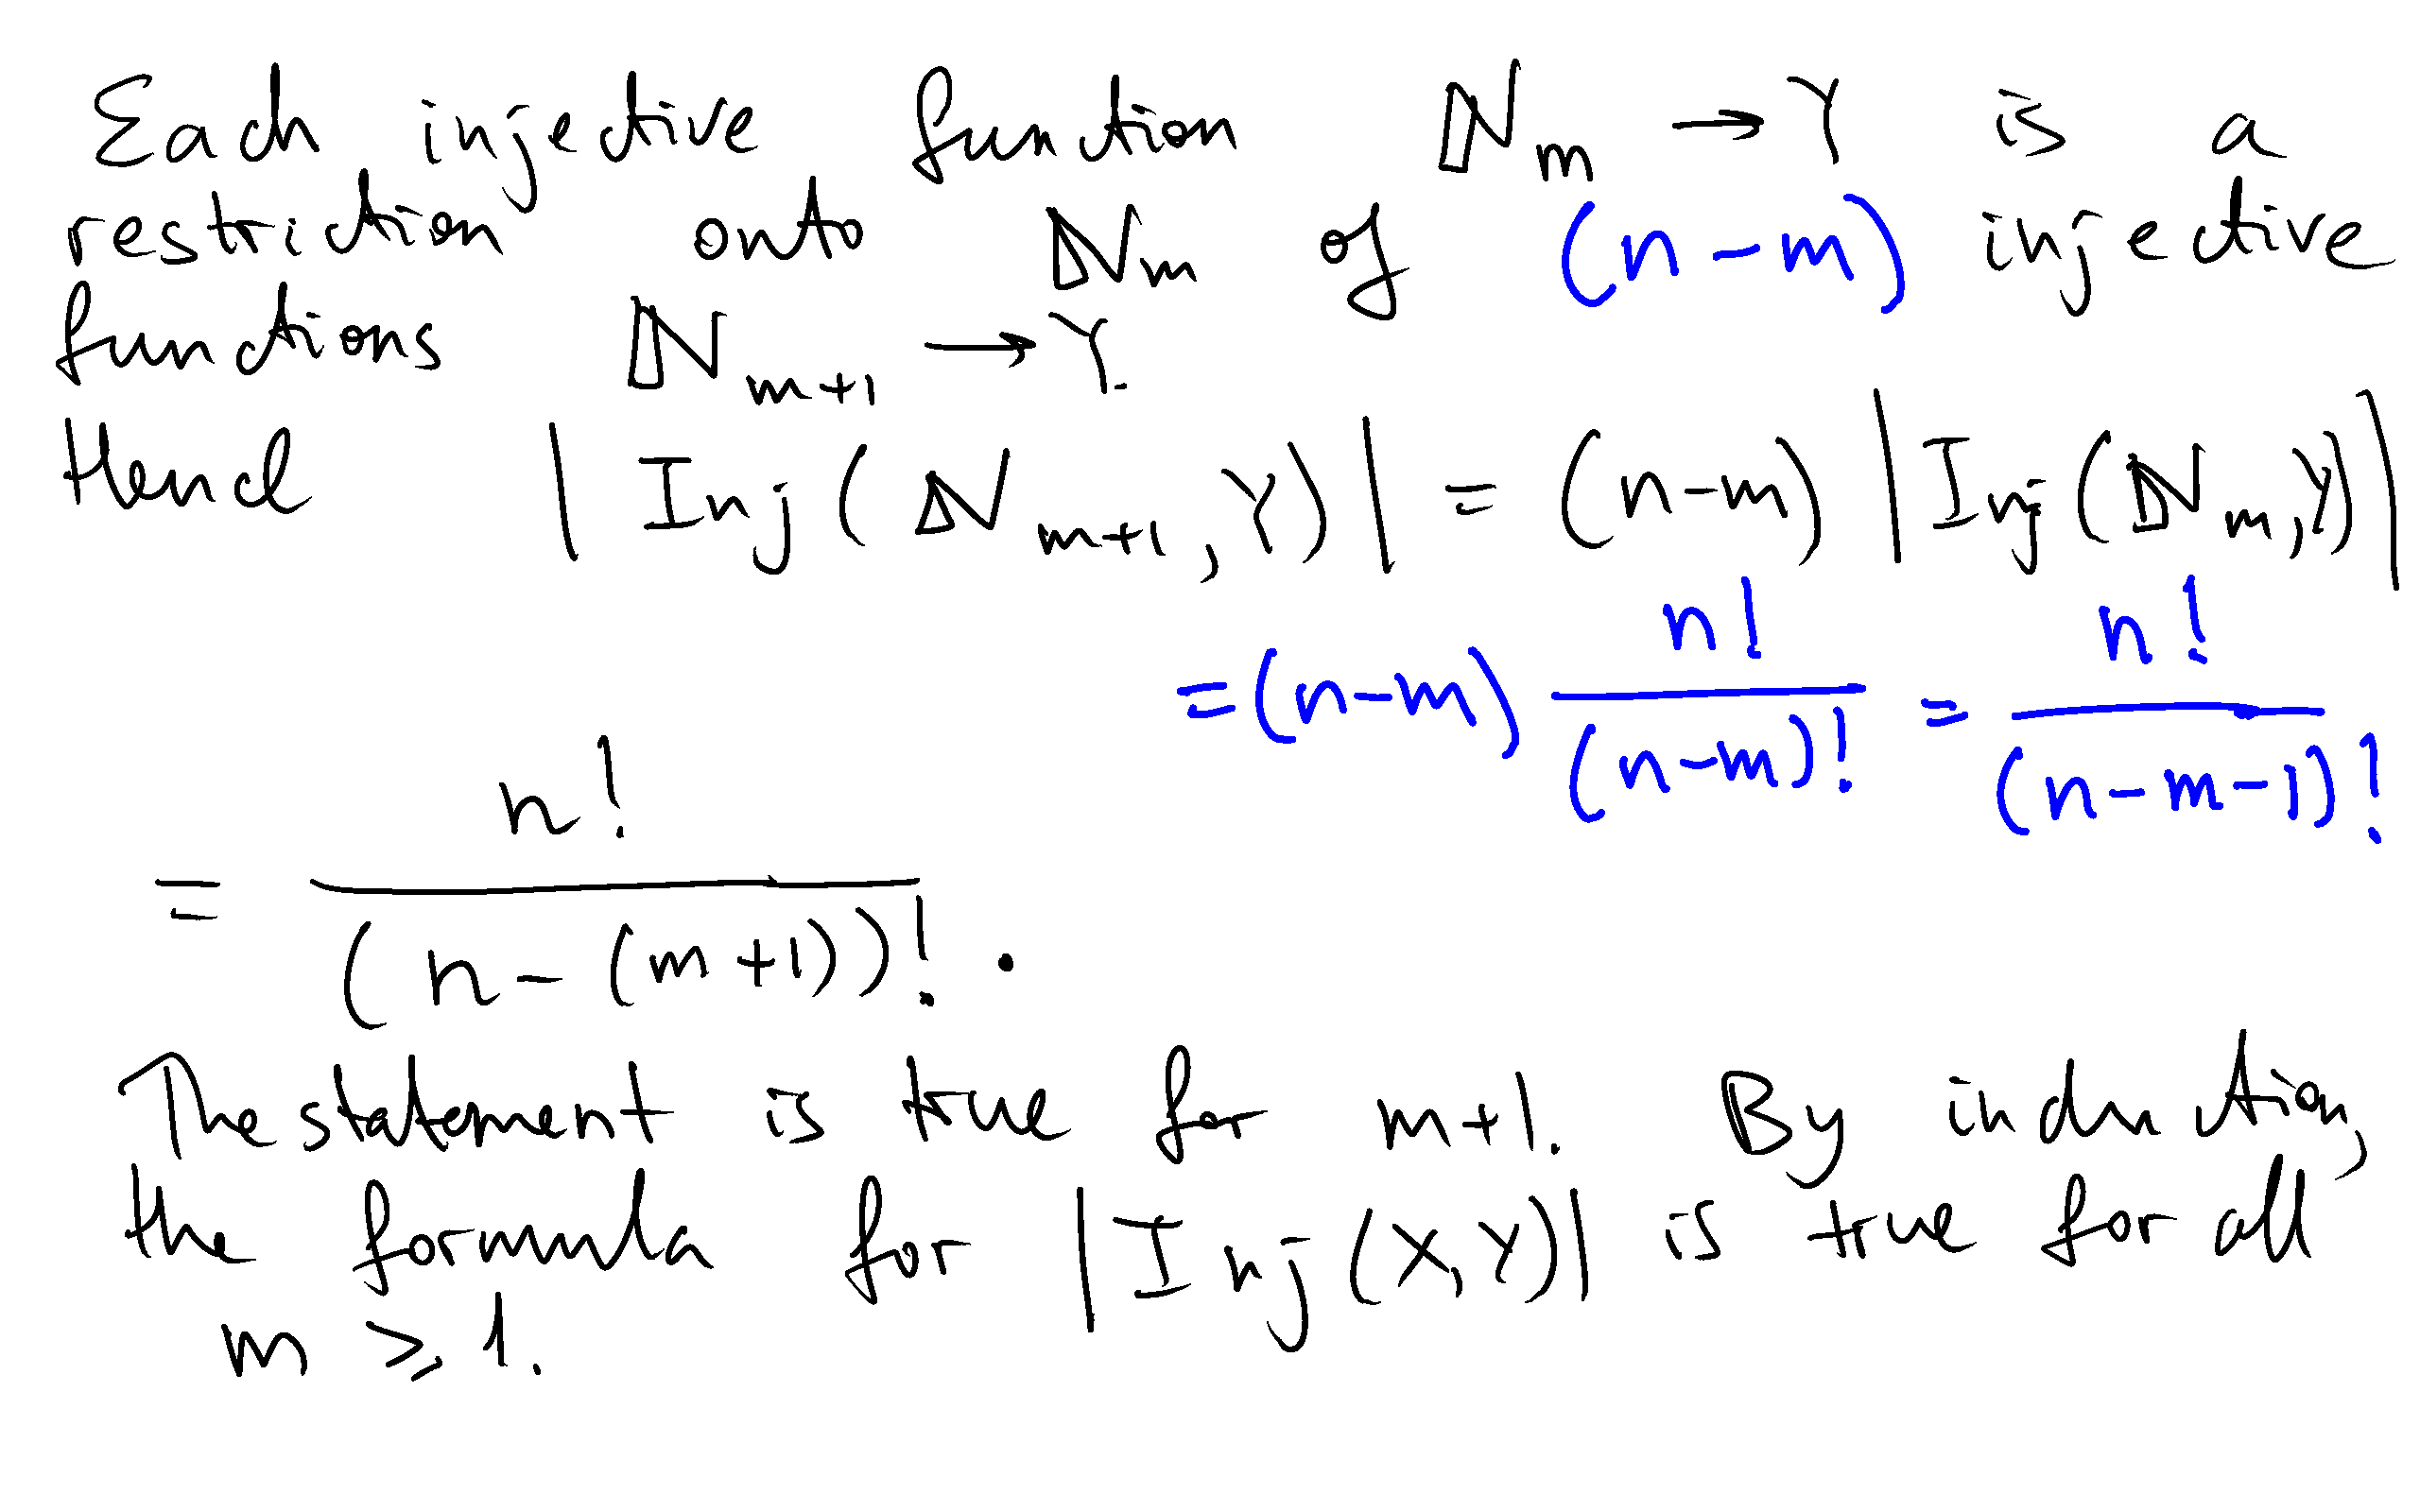 Each injective function ℕ_m → Y is a
restriction onto ℕ_m of (n-m) injective
functions ℕ_{m+1} → Y.
Hence |Inj(ℕ_{m+1}, Y)| = (n-m) |Inj(ℕ_m, Y)|
= (n-m) n!/(n-m)! = n!/(n-m-1)!
= n!/(n-(m+1))! .
The statement is true for m+1. By induction,
the formula for |Inj(X,Y)| is true for all
m ⩾ 1.